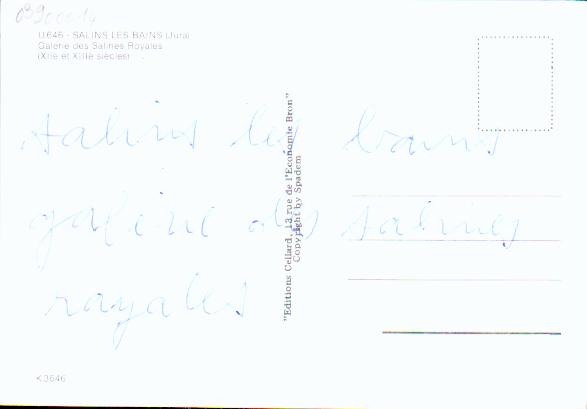 U.646 - SALINS LES BAINS (Jura)
Galerie des Salines Royales
(XIIe et XIIIe siècles)
salins les bains
galerie des salines
royales
"Editions Cellard, 13 rue de l'Economie Bron"
Copyright by Spadem
K3646